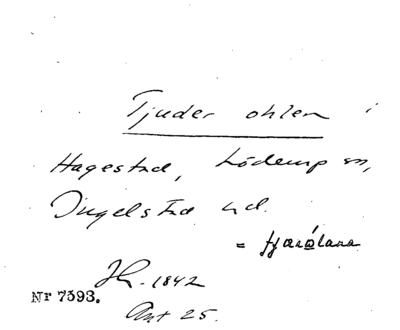 Tjuder ohlen i
Hagestad, Löderup sn,
Ingelstad hd.
= fjärälana
JG. 1842
Nr 7593.
Ant 25.